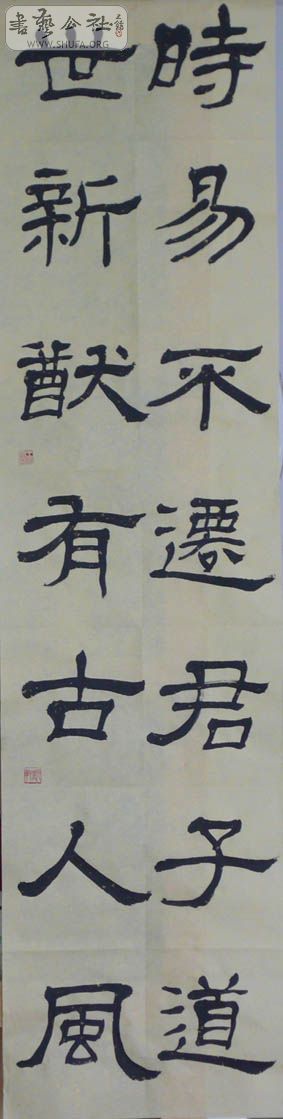 時易不遷君子道
世新猷有古人風
書藝公社
WWW.SHUFA.ORG